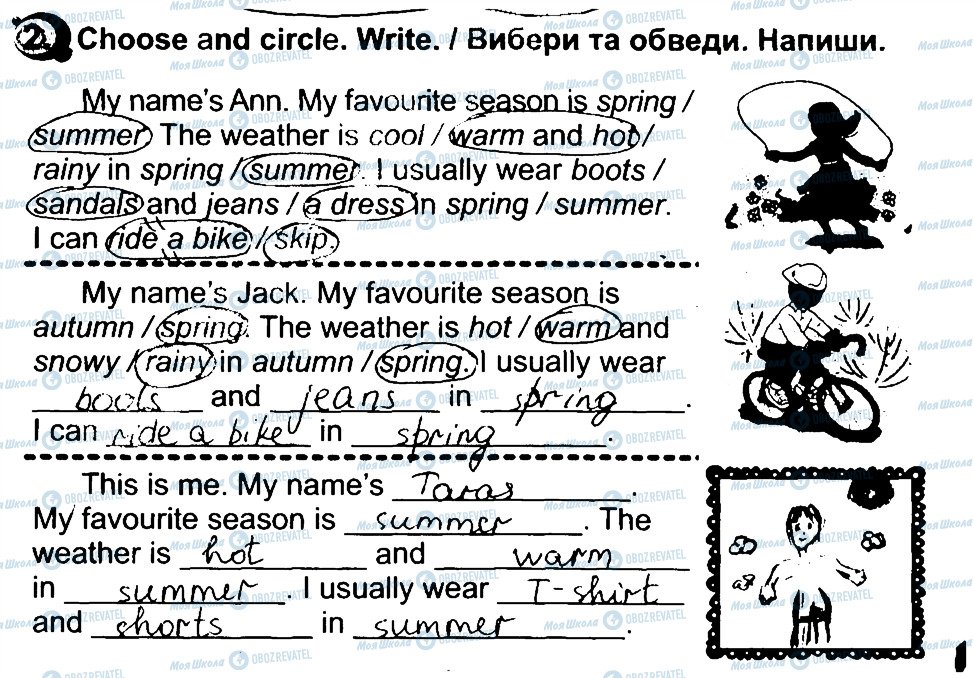 2. Choose and circle. Write. / Вибери та обведи. Напиши.
My name's Ann. My favourite season is spring /
summer. The weather is cool / warm and hot /
rainy in spring / summer. I usually wear boots /
sandals and jeans / a dress in spring / summer.
I can ride a bike / skip.
My name's Jack. My favourite season is
autumn / spring. The weather is hot / warm and
snowy / rainy in autumn / spring. I usually wear
boots and jeans in spring.
I can ride a bike in spring.
This is me. My name's Taras.
My favourite season is summer. The
weather is hot and warm
in summer. I usually wear T-shirt
and shorts in summer.
Моя Школа OBOZREVATEL